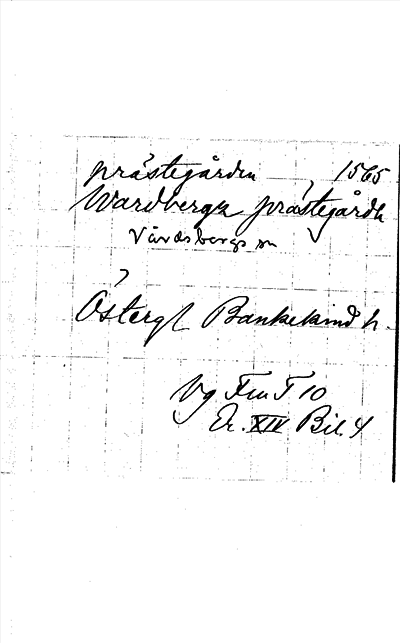 prästegården 1565
Wardberga prästegårdh
Vårdsbergs sn
Östergl Bankekind h.
Vg. Fru T 10
Er. XIV Bil. 4